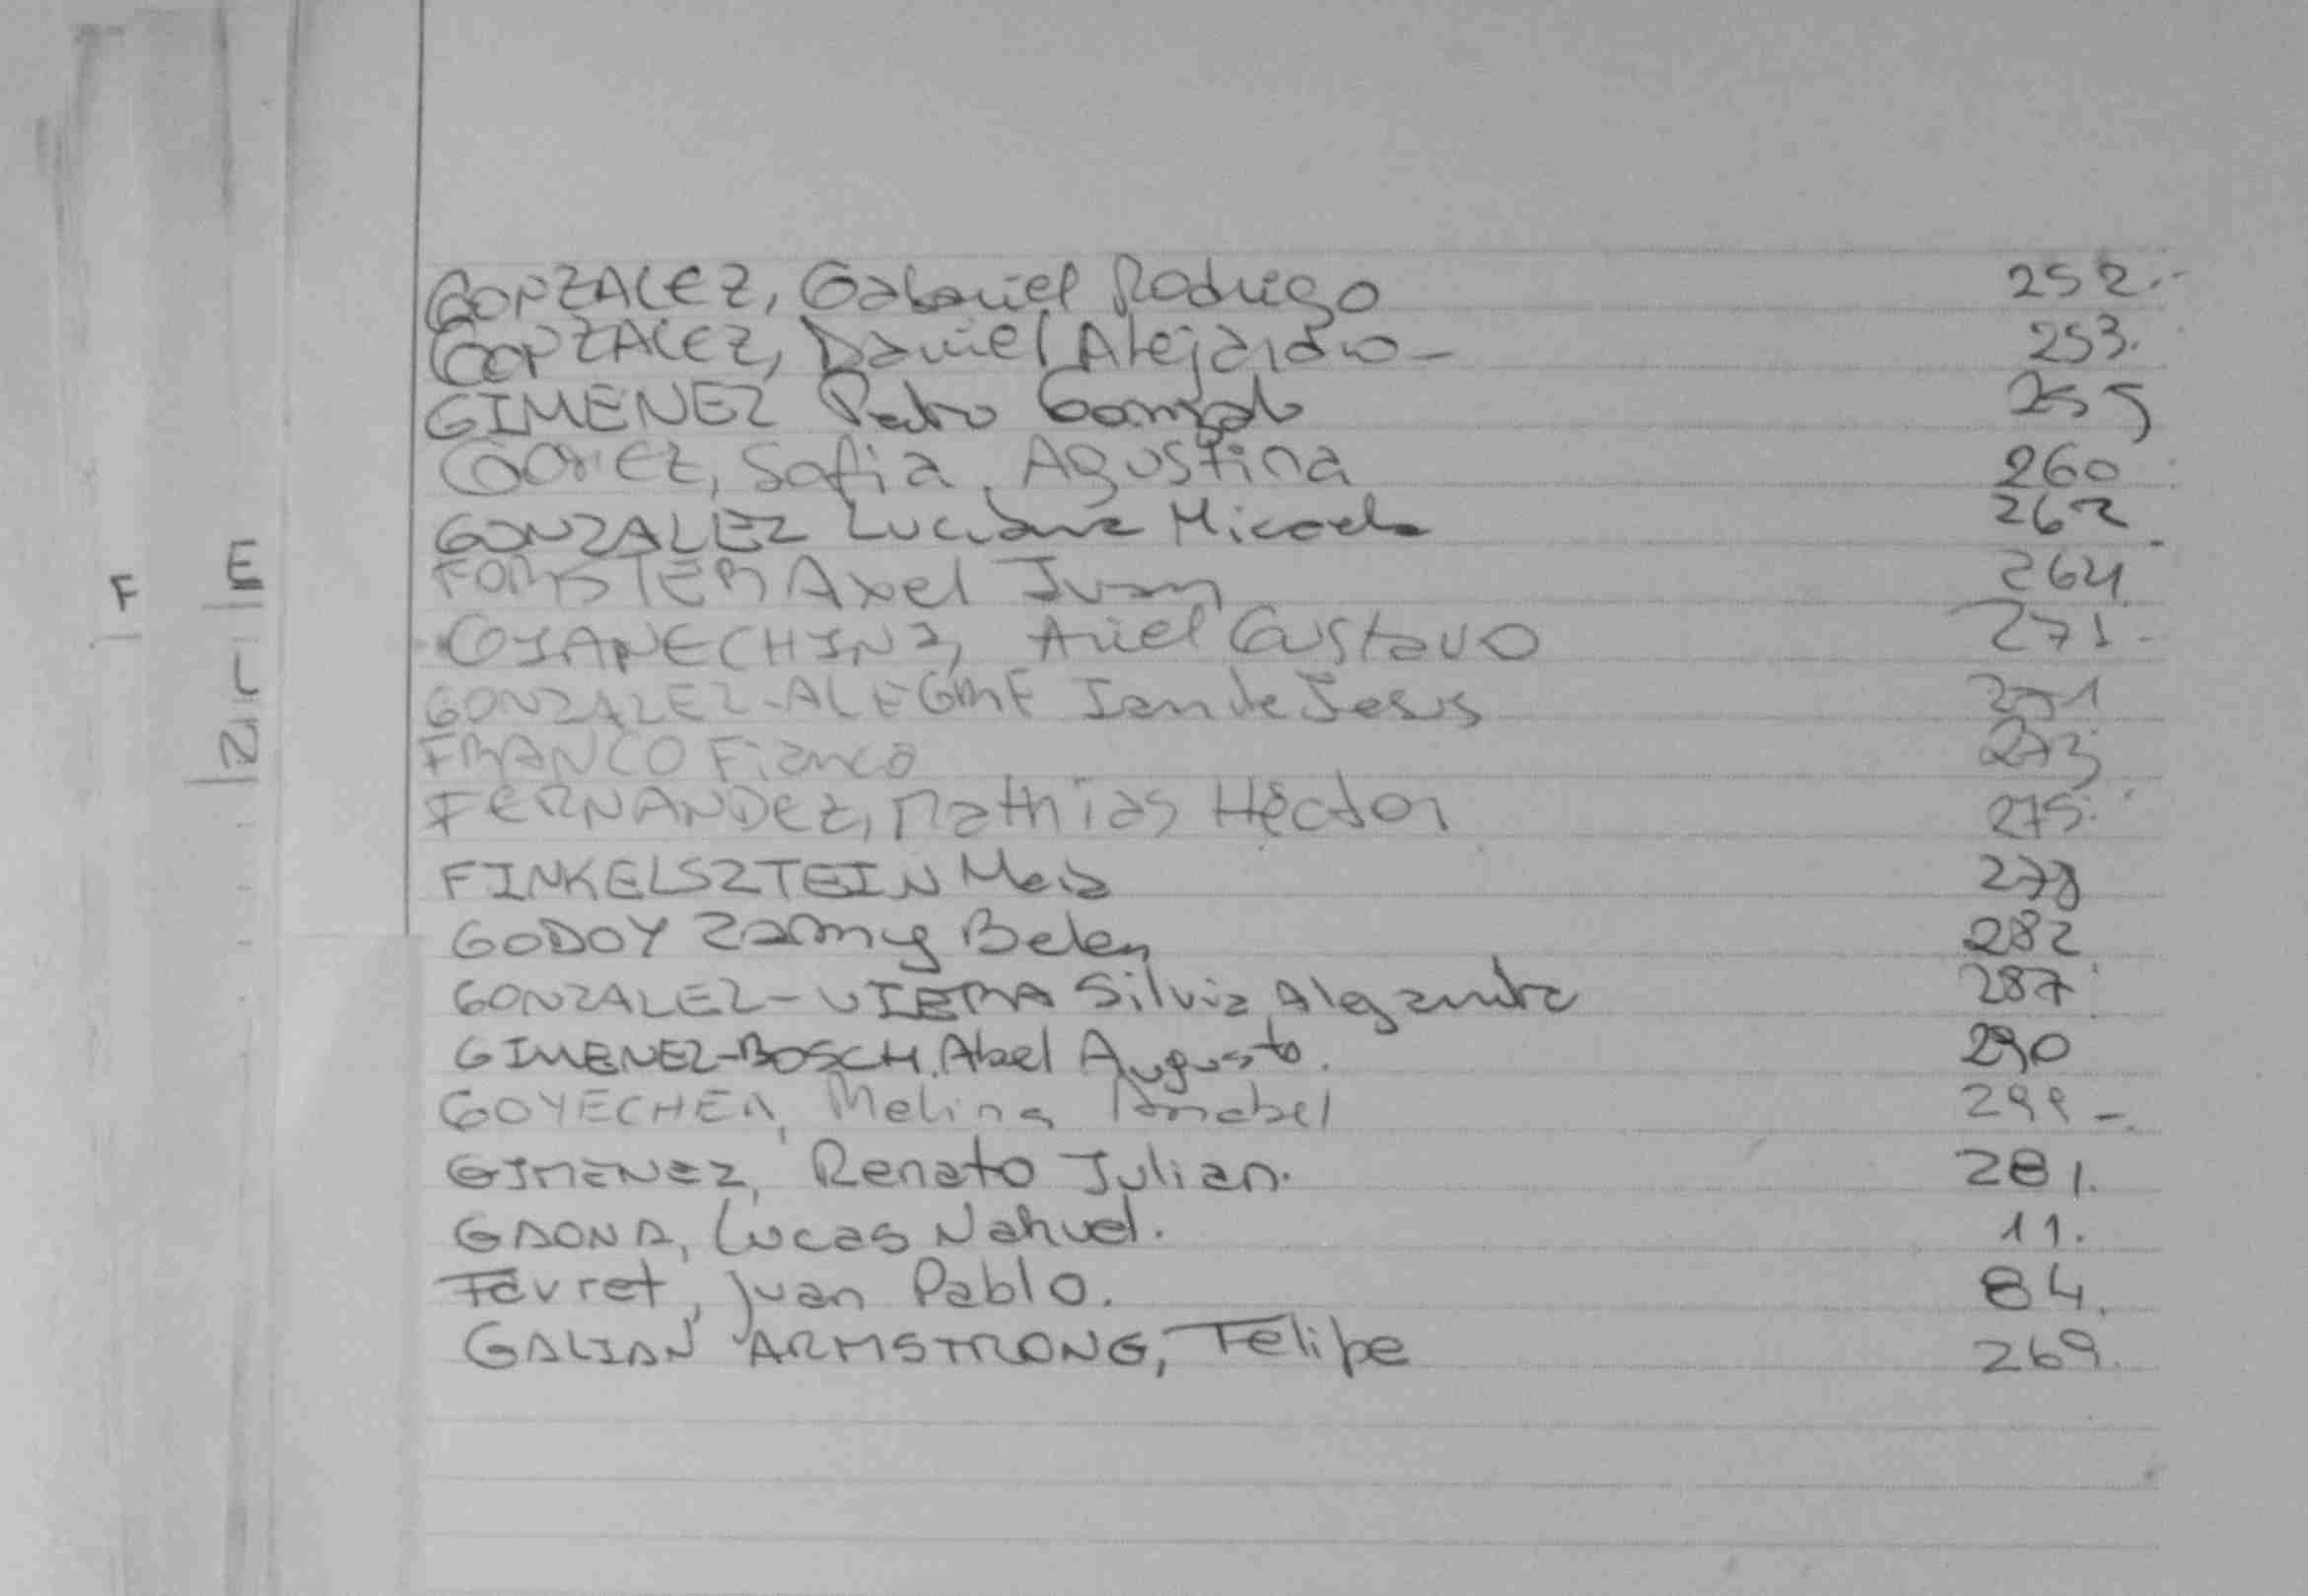 GONZALEZ, Gabriel Rodrigo 252.-
GONZALEZ, Daniel Alejandro - 253.
GIMENEZ Pedro Gonzalo 255
GOMEZ, Sofia Agustina 260
GONZALEZ Luciana Micaela 262
FORSTER Axel Ivan 264
Ariel Gustavo 271-
GONZALEZ-ALEGRE Ian de Jesus 271
FRANCO Franco 273
FERNANDEZ, Mathias Héctor 275.
FINKELSZTEIN 278
GODOY Belen 282
GONZALEZ-VIERA Silvia Alejandra 287
GIMENEZ-BOSCH. Abel Augusto. 290
GOYECHEA, Melina Anabel 299-.
GIMENEZ, Renato Julian. 281.
GAONA, Lucas Nahuel. 11.
Favret, Juan Pablo. 84.
GALIAN ARMSTRONG, Felipe 269.
E
F